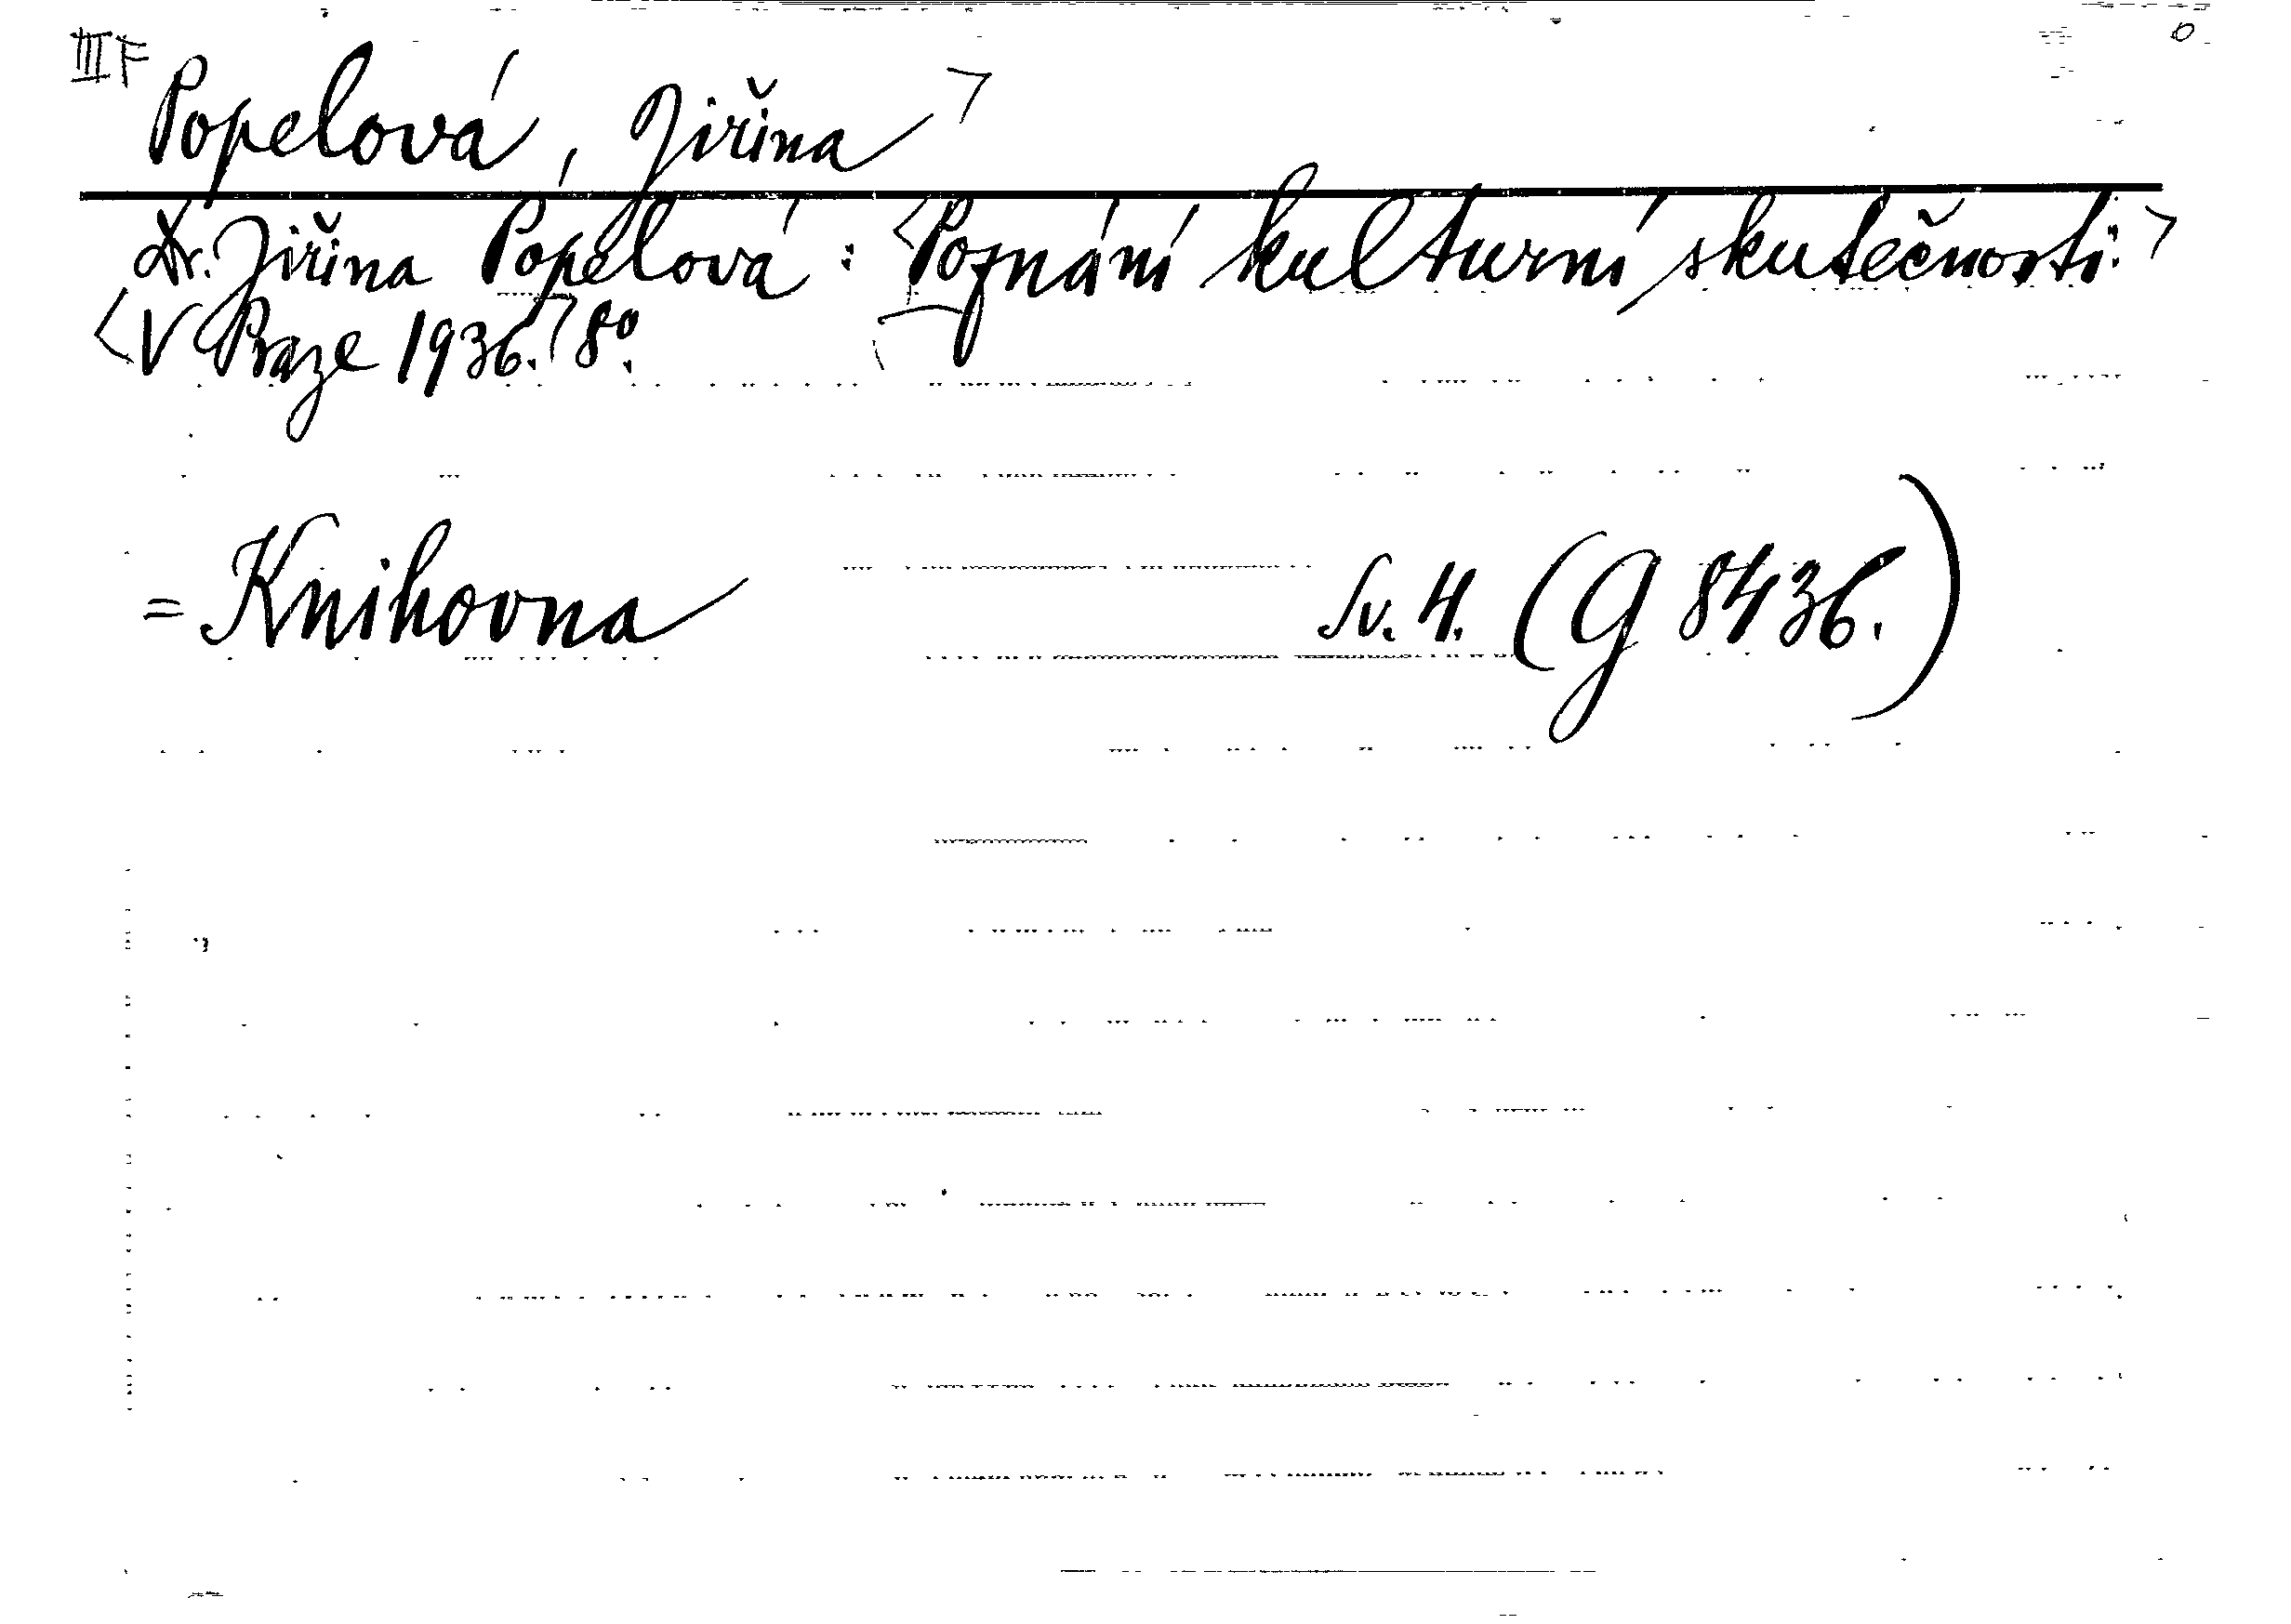 III F
Popelová, Jiřina >
Dr. Jiřina Popelová: <Poznání kulturní skutečnosti.>
<V Praze 1936.> 8º.
= Knihovna Sv. 4. (G 8436.)